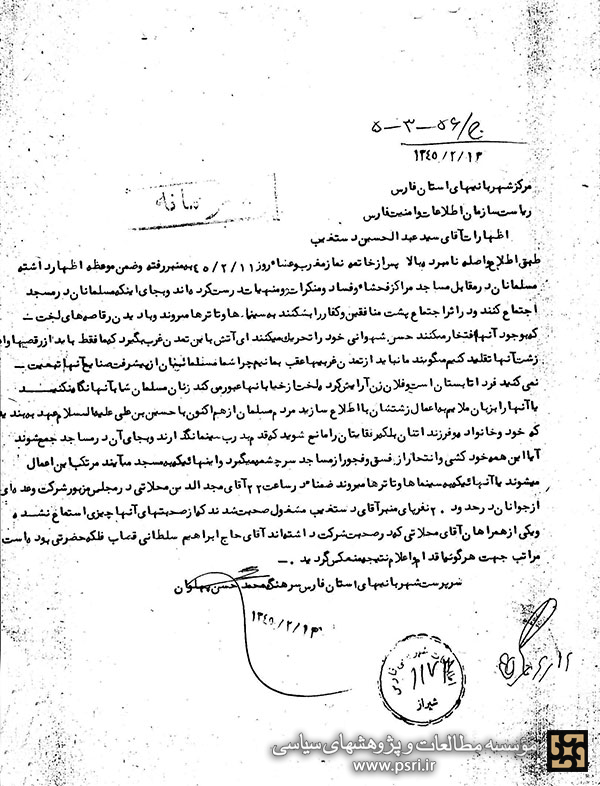 ۵-۳-۵۶/ج
۱۳۴۵/۲/۱۳
مرکز شهربانیهای استان فارس
ریاست سازمان اطلاعات و امنیت فارس
اظهارات آقای سید عبدالحسین دستغیب
طبق اطلاع واصله نامبرده بالا پس از خاتمه نماز مغرب و عشاء روز ۴۵/۲/۱۱ به منبر رفته و ضمن موعظه اظهار داشته
مسلمانان در مقابل مساجد مراکز فحشاء و فساد و منکرات و منهیات درست کرده اند و بجای اینکه مسلمانان در مسجد
اجتماع کنند و در اثر اجتماع پشت منافقین و کفار را بشکنند به سینماها و تاترها میروند و با دیدن رقاصه های لخت
که بوجود آنها افتخار میکنند حس شهوانی خود را تحریک میکنند ای آتش باین تمدن غرب بگیرد که ما فقط باید از رقصها و
زشت آنها تقلید کنیم میگویند ما نباید از تمدن غربیها عقب بمانیم چرا شما مسلمان نمایان از پیشرفت صنایع آنها تبعیت
نمی کنید فردا تابستان است و فلان زن آرایش کرده و لخت از خیابانها عبور می کند زنان مسلمان شما به آنها نگاه نکنید
یا آنها را بزبان ملایم به اعمال زشتشان با اطلاع سازید مردم مسلمان از هم اکنون با حسین بن علی علیه السلام عهد ببندید
که خود و خانواده و فرزندانتان بلکه رفقایتان را مانع شوید که قدم بدرب سینما نگذارند و بجای آن در مساجد جمع شوند
آیا این همه خود کشی و انتحار از فسق و فجور از مساجد سرچشمه میگیرد و اینهائیکه به مسجد می آیند مرتکب این اعمال
میشوند یا آنهائیکه به سینماها و تاترها میروند ضمنا در ساعت ۲۲ آقای مجدالدین محلاتی در مجلس مزبور شرکت و عده ای
از جوانان در حدود ۲۰ نفر پای منبر آقای دستغیب مشغول صحبت شدند که از صحبتهای آنها چیزی استماع نشده
و یکی از همراهان آقای محلاتی که در صحبت شرکت داشته اند آقای حاج ابراهیم سلطانی قصاب فلکه حضرتی بوده است
مراتب جهت هرگونه اقدام و اعلام نتیجه منعکس گردید.
سرپرست شهربانیهای استان فارس سرهنگ محمد حسن پهلوان
۱۳۴۵/۲/۱۳
۱۱۷۲
شیراز
مؤسسه مطالعات و پژوهشهای سیاسی
www.psri.ir